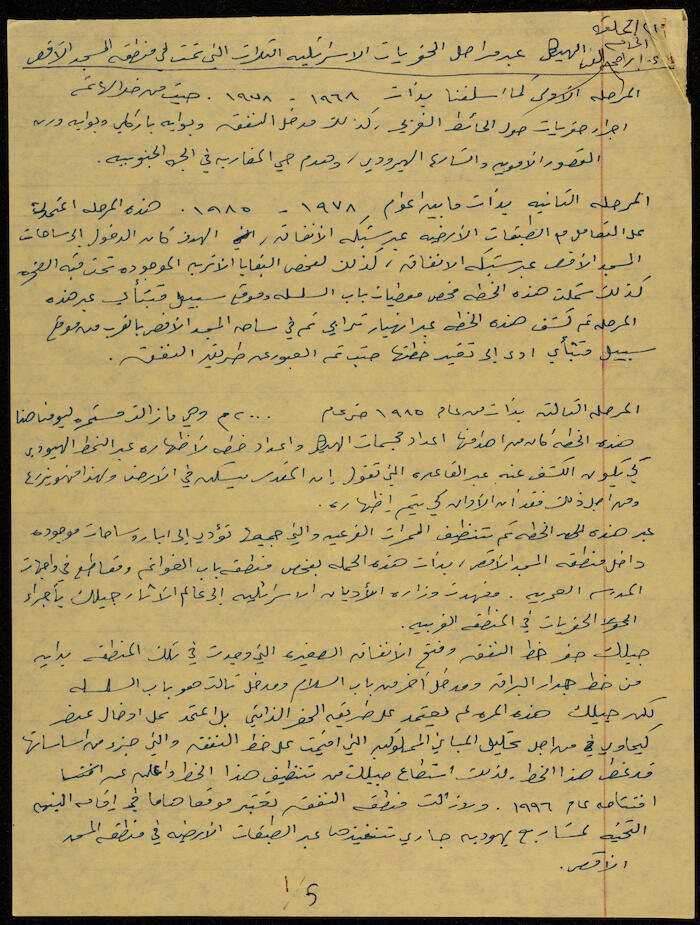 الهيكل عبر مراحل الحفريات الاسرائيليه الثلاث التي تمت في منطقة المسجد الأقصى
المرحله الأولى كما اسلفنا بدأت ١٩٦٨ - ١٩٧٨ . حيث من خلالها تم
اجراء حفريات حول الحائط الغربي، كذلك مدخل النفق وبوابه باركلي وبوابه ورن
القصور الأمويه والشارع الهيرودي، وهدم حي المغاربه في الجهه الجنوبيه.
المرحله الثانيه بدأت ما بين اعوام ١٩٧٨ - ١٩٨٥ . هذه المرحله اعتمدت
على التعامل مع الطبقات الأرضيه عبر شبكه الأنفاق، الهدف كان الدخول إلى ساحات
المسجد الأقصى عبر شبكه الانفاق، كذلك لفحص البقايا الأثريه الموجوده تحت قبه الصخره
كذلك شملت هذه الخطه فحص معطيات باب السلسله وموقع سبيل قيتباي عبر هذه
المرحله تم كشف هذه الخطه عبر انهيار ترابي تم في ساحه المسجد الأقصى بالقرب من موقع
سبيل قيتباي ادى إلى تغير خطتها حيث تم العبور عن طريق النفق .
المرحله الثالثه بدأت من عام ١٩٨٥ حتى عام ٢٠٠٠م وهي ما زالت مستمره ليومنا هذا
هذه الخطه كان من اهدافها اعداد مجسمات الهيكل واعداد خطه لأظهاره عبر النمط اليهودي
كي يكون الكشف عنه عبر القاعده التي تقول ان المقدس يسكن في الأرض ولهذا
ومن اجل ذلك فقد آن الأوان كي يتم إظهاره.
عبر هذه الخطه تم تنظيف الممرات الفرعيه والتي جميعها تؤدي إلى ابار وساحات موجوده
داخل منطقة المسجد الأقصى، بدأت هذه الحمله بفحص منطقه باب الغوانمه ومقاطع في واجهات
المدرسه العمريه . فعهدت وزارة الأديان الاسرائيليه إلى عالم الآثار جبيلك بأجراء
الحفريات في المنطقه الغربيه.
جبيلك حفر خط النفق وفتح الأنفاق الصغيره التي وجدت في تلك المنطقه بدايه
من خط جدار البراق ومدخل آخر من باب السلام ومدخل ثالث هو باب السلسله
لكن جبيلك هذه المره لم يعتمد على طريقه الحفر الذاتي بل اعتمد على ادخال عنصر
كيماوي من اجل تحليل المباني المملوكيه التي اقيمت على خط النفق والتي جزء من اساساتها
قد غطى هذا الخط. لذلك استطاع جبيلك من تنظيف هذا الخط
افتتاحه عام ١٩٩٦. ولا زالت منطقه النفق تعتبر موقعا هاما في إقامه البنيه
التحتيه لمشاريع يهوديه جاري تنفيذها عبر الطبقات الأرضيه في منطقه المسجد
الأقصى.